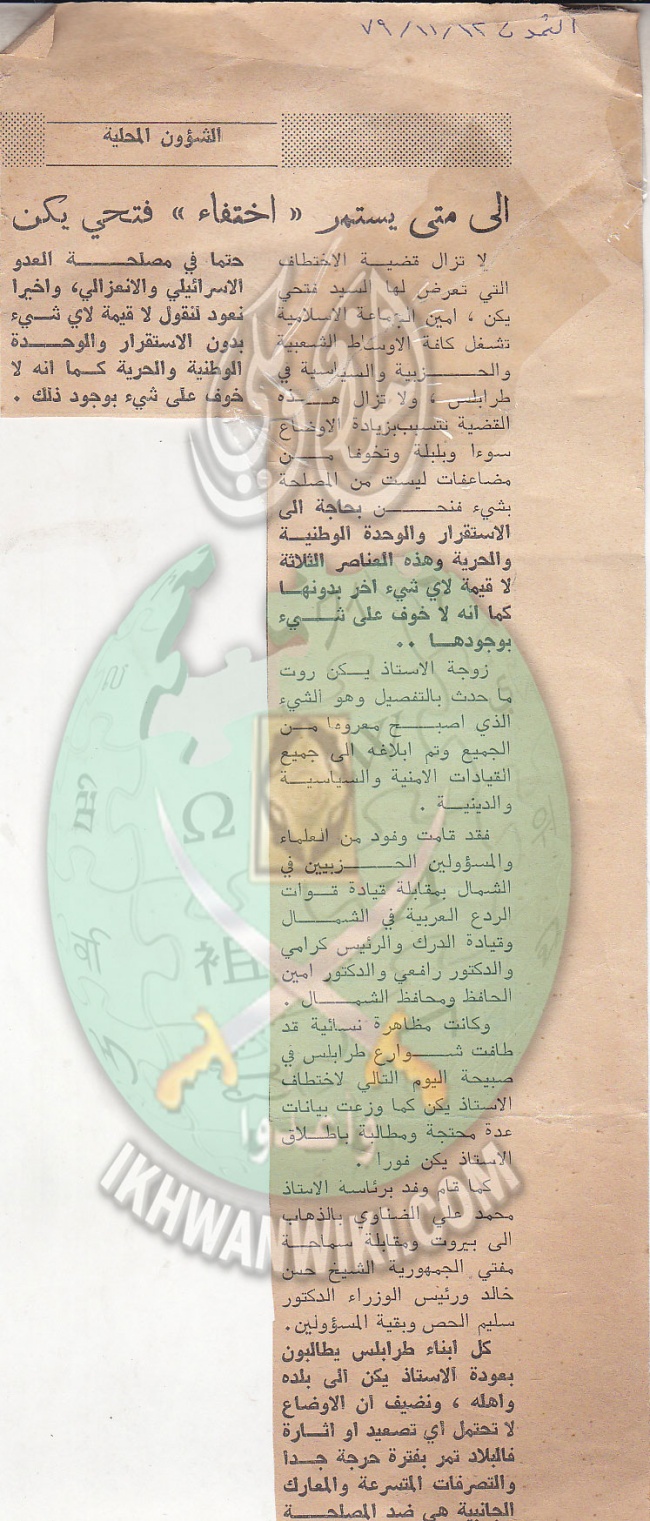 التمدن ٧٩/١١/١٢
الشؤون المحلية
الى متى يستمر « اختفاء » فتحي يكن
لا تزال قضيـــة الاختطاف
التي تعرض لها السيد فتحي
يكن ، امين الجماعة الاسلامية
تشغل كافة الاوساط الشعبية
والحـــــزبية والسياسية في
طرابلس ، ولا تزال هـــذه
القضية تتسبب بزيادة الاوضاع
سوءا وبلبلة وتخوفا مـــن
مضاعفات ليست من المصلحة
بشيء فنحـــــن بحاجة الى
الاستقرار والوحدة الوطنيـة
والحرية وهذه العناصر الثلاثة
لا قيمة لاي شيء اخر بدونهـا
كما انه لا خوف على شـــيء
بوجودهـا ..
زوجة الاستاذ يـكن روت
ما حدث بالتفصيل وهو الشيء
الذي اصبـــح معروفا مـن
الجميع وتم ابلاغه الى جميع
القيادات الامنية والسياسيـة
والدينيـــة .
فقد قامت وفود من العلماء
والمسؤولين الحـــــزبيين في
الشمال بمقابلة قيادة قـــوات
الردع العربية في الشمـــال
وقيادة الدرك والرئيس كرامي
والدكتور رافعي والدكتور امين
الحافظ ومحافظ الشمــــال .
وكانت مظاهرة نسائية قد
طافت شـــوارع طرابلس في
صبيحة اليوم التالي لاختطاف
الاستاذ يكن كما وزعت بيانات
عدة محتجة ومطالبة باطـلاق
الاستاذ يكن فورا .
كما قام وفد برئاسة الاستاذ
محمد علي الضناوي بالذهاب
الى بيروت ومقابلة سماحـــة
مفتي الجمهورية الشيخ حسن
خالد ورئيس الوزراء الدكتور
سليم الحص وبقية المسؤولين.
كل ابناء طرابلس يطالبون
بعودة الاستاذ يكن الى بلده
واهله ، ونضيف ان الاوضاع
لا تحتمل أي تصعيد او اثـارة
فالبلاد تمر بفترة حرجة جـدا
والتصرفات المتسرعة والمعارك
الجانبية هي ضد المصلحـــة
حتما في مصلحـــة العدو
الاسرائيلي والانعزالي، واخيرا
نعود لنقول لا قيمة لاي شـيء
بدون الاستقرار والوحـــدة
الوطنية والحرية كـما انه لا
خوف على شيء بوجود ذلك .
Ω
祖
واعدوا
IKHWANWIKI.COM